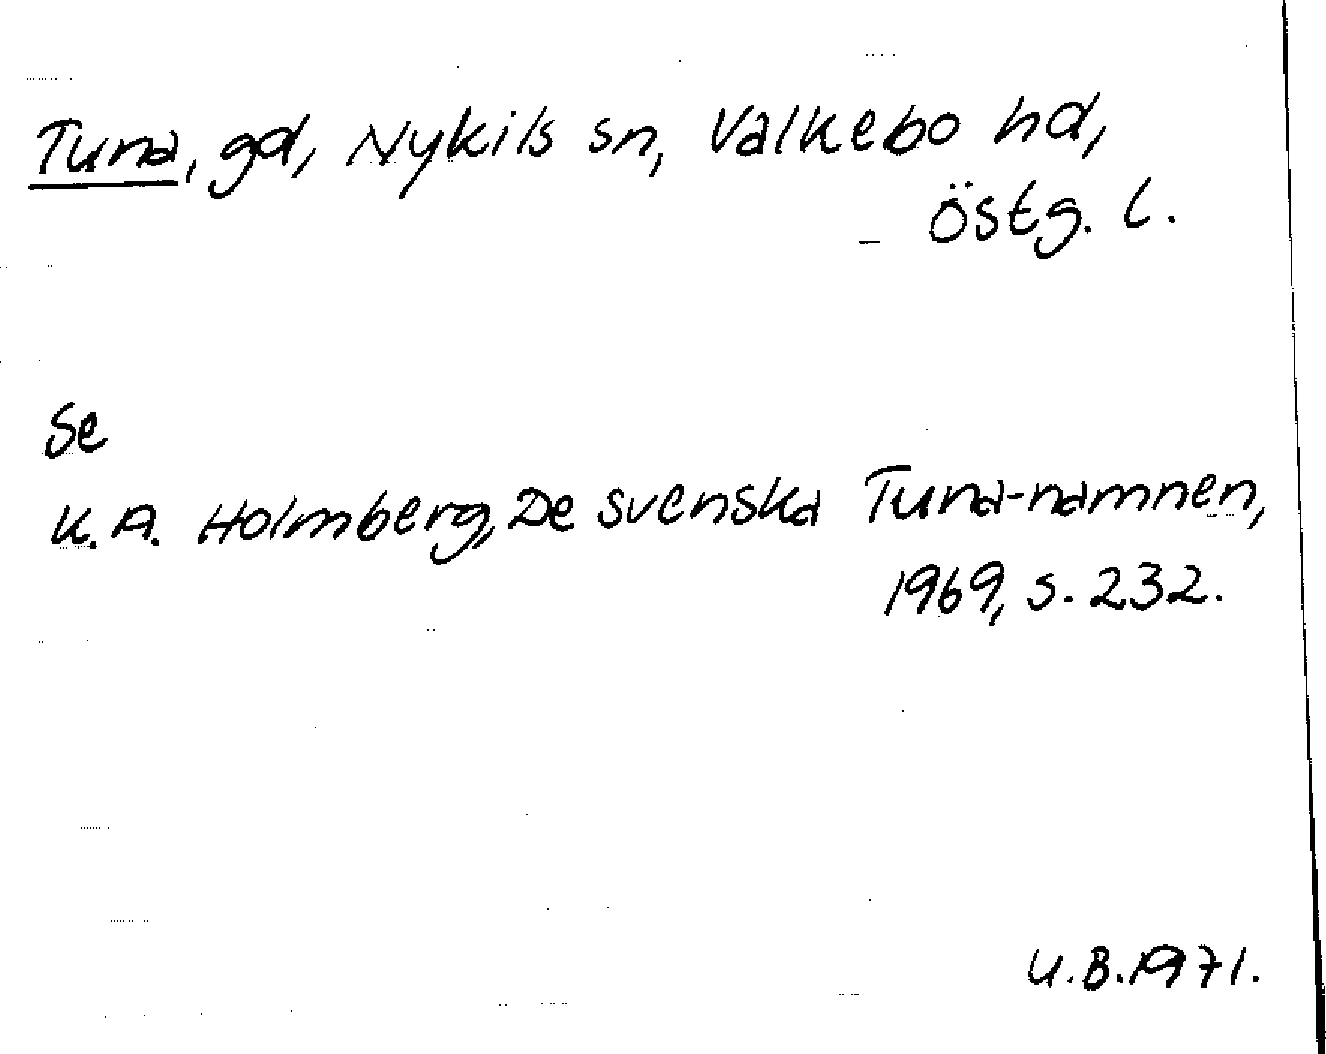 Tuna, gd, Nykils sn, Valkebo hd,
Östg. l.
Se
K. A. Holmberg, De svenska Tuna-namnen,
1969, s. 232.
U.B. 1971.